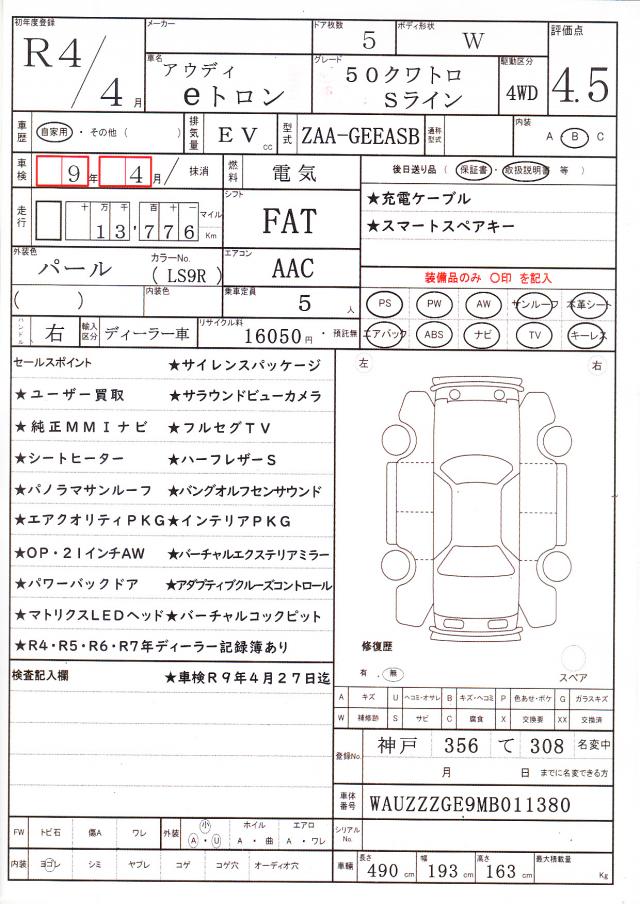 初年度登録 R4/4月
メーカー
ドア枚数 5
ボディ形状 W
評価点 4.5
車名 アウディ
eトロン
グレード 50クワトロ
Sライン
駆動区分 4WD
車歴 自家用・その他( )
排気量 EV cc
型式 ZAA-GEEASB
通称型式
内装 A・B C
車検 9年 4月/抹消
燃料 電気
後日送り品( 保証書・取扱説明書 等 )
★充電ケーブル
★スマートスペアキー
走行 十万千百十一
13,776 マイル Km
シフト FAT
外装色 パール
カラーNo. (LS9R)
エアコン AAC
装備品のみ 〇印 を記入
( )
内装色
乗車定員 5人
PS PW AW サンルーフ 本革シート
エアバック ABS ナビ TV キーレス
ハンドル 右
輸入区分 ディーラー車
リサイクル料 16050円・預託無
セールスポイント ★サイレンスパッケージ
★ユーザー買取 ★サラウンドビューカメラ
★純正MMIナビ ★フルセグTV
★シートヒーター ★ハーフレザーS
★パノラマサンルーフ ★バングオルフセンサウンド
★エアクオリティPKG★インテリアPKG
★OP・21インチAW ★バーチャルエクステリアミラー
★パワーバックドア ★アダプティブクルーズコントロール
★マトリクスLEDヘッド★バーチャルコックピット
★R4・R5・R6・R7年ディーラー記録簿あり
左 右
修復歴
有.無
スペア
検査記入欄 ★車検R9年4月27日迄
A キズ U ヘコミ・オサレ B キズ・ヘコミ P 色あせ・ボケ G ガラスキズ
W 補修跡 S サビ C 腐食 X 交換要 XX 交換済
登録No. 神戸 356 て 308 名変中
月 日 までに名変できる方
車体番号 WAUZZZGE9MB011380
シリアルNo.
FW トビ石 傷A ワレ
外装 小 A・U
ホイル A・曲
エアロ A・ワレ
内装 ヨゴレ シミ ヤブレ コゲ コゲ穴 オーディオ穴
車輛 長さ 490cm 幅 193cm 高さ 163cm 最大積載量 Kg